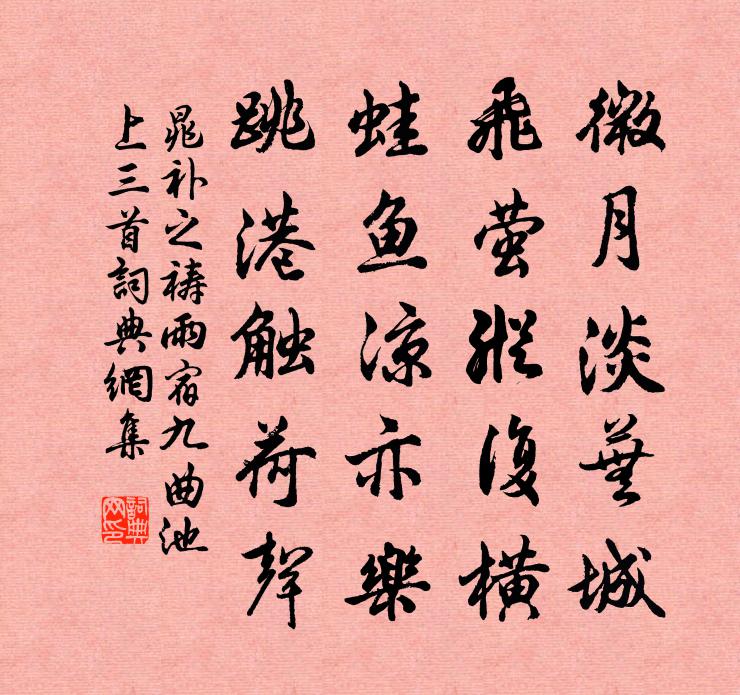 微月淡蕪城
飛萤縱復横
蛙鱼涼亦樂
跳港触荷聲
晁补之禱雨宿九曲池
上三首詞典網集
詞典
网印